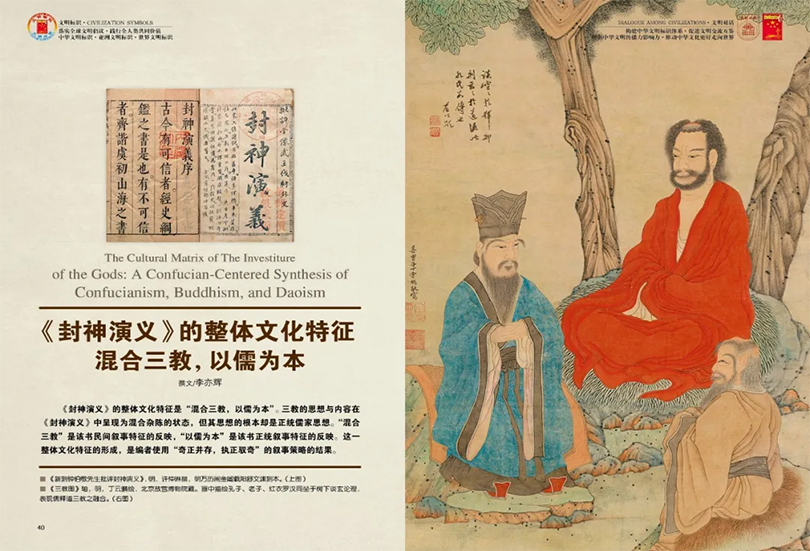 文明标识·CIVILIZATION SYMBOLS
落实全球文明倡议·践行全人类共同价值
中华文明标识·亚洲文明标识·世界文明标识
封神演義序
古今有可信者經史綱
鑑之書是也有不可信
者齊諧虞初山海之書
封神演義
The Cultural Matrix of The Investiture
of the Gods: A Confucian-Centered Synthesis of
Confucianism, Buddhism, and Daoism
《封神演义》的整体文化特征
混合三教，以儒为本
撰文/李亦辉
《封神演义》的整体文化特征是“混合三教，以儒为本”。三教的思想与内容在
《封神演义》中呈现为混合杂陈的状态，但其思想的根本却是正统儒家思想。“混合
三教”是该书民间叙事特征的反映，“以儒为本”是该书正统叙事特征的反映。这一
整体文化特征的形成，是编者使用“奇正并存，执正驭奇”的叙事策略的结果。
■《新刻钟伯敬先生批评封神演义》，明，许仲琳編，明万历间金阊载阳舒文渊刻本。（上图）
■《三教图》轴，明，丁云鹏绘，北京故宫博物院藏。画中描绘孔子、老子、红衣罗汉同坐于树下谈玄论理，
表现儒释道三教之融合。（右图）
40
DIALOGUE AMONG CIVILIZATIONS·文明对话
构建中华文明标识体系·促进文明交流互鉴
中华文明传播力影响力·推动中华文化更好走向世界